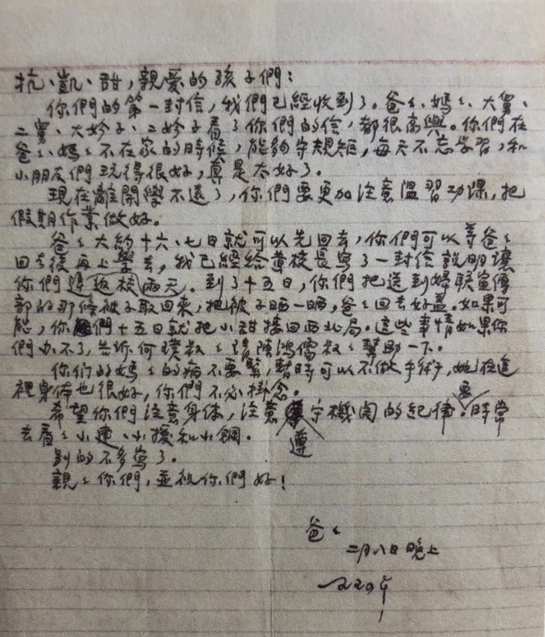 抗、凱、甜,親愛的孩子們:
你們的第一封信,我們已經收到了。爸〻、媽〻、大舅、
二舅、大妗子、二妗子看了你們的信,都很高興。你們在
爸〻、媽〻不在家的時候,能夠守規矩,每天不忘學習,和
小朋友們玩得很好,真是太好了。
現在離開學不遠了,你們要更加注意溫習功課,把
假期作業做好。
爸〻大約十六、七日就可以先回去,你們可以等爸〻
回去後再上學去,我已經給韋校長寫了一封信說明讓
你們遲返校兩天。到了十五日,你們把送到婦聯宣傳
部的那條被子取回來,把被子晒一晒,爸〻回去好蓋。如果可
能,你們十五日就把小甜接回西北局。這些事情如果你
們办不了,告訴何璞叔〻請陳鴻儒叔〻幫助一下。
你們媽〻的病不要緊,暫時可以不做手術,她在這
裡身体也很好,你們不必掛念。
希望你們注意身体,注意遵守機関的紀律。要時常
去看〻小建、小援和小鋼。
別的不多寫了。
親〻你們,並祝你們好!
爸〻
二月八日晚上